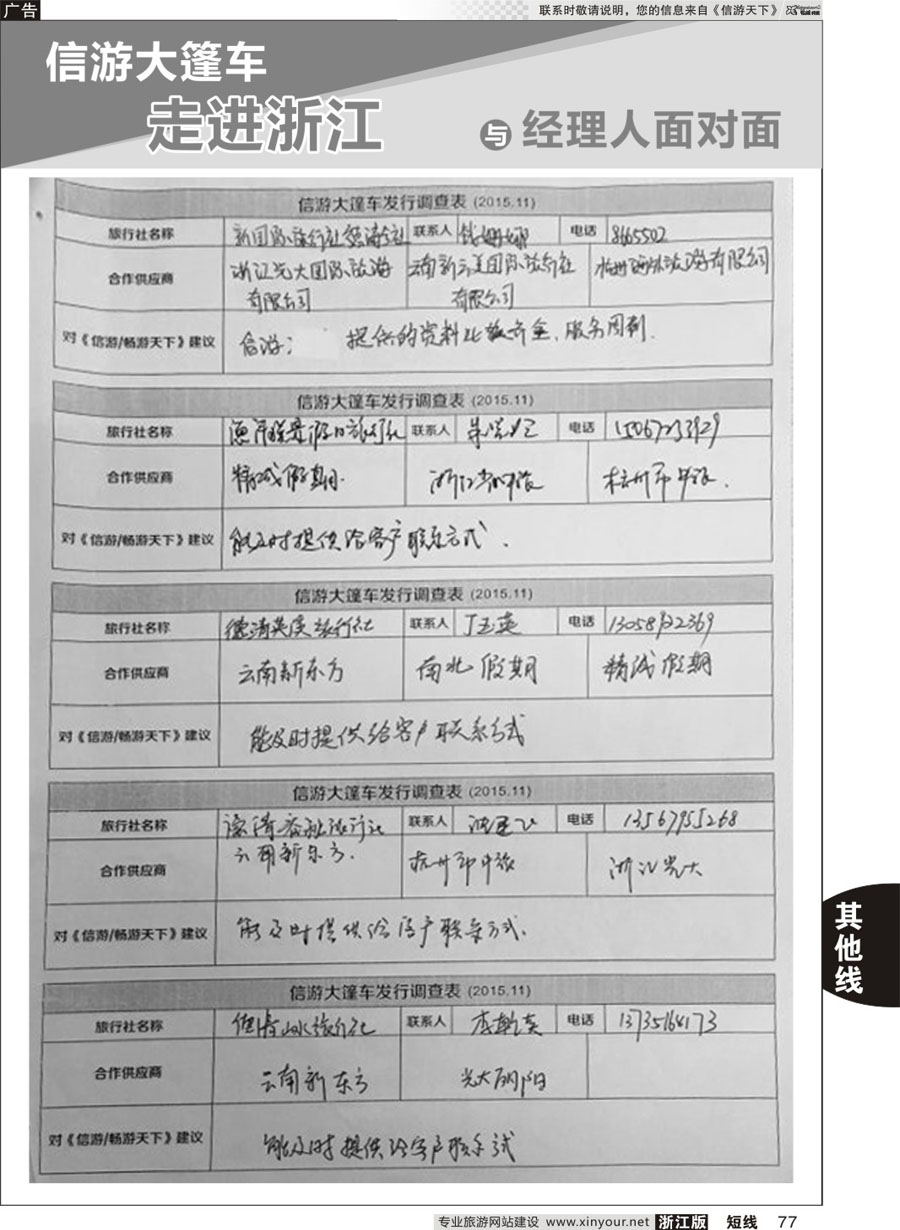 广告
联系时敬请说明，您的信息来自《信游天下》
信游大篷车
走进浙江
与 经理人面对面
信游大篷车发行调查表 (2015.11)
旅行社名称 联系人 电话 8665502
合作供应商 浙江光大国际旅游 云南新 美国际旅行社
有限公司 有限公司
对《信游/畅游天下》建议 信游： 提供的资料比较齐全、服务周到.
信游大篷车发行调查表 (2015.11)
旅行社名称 联系人 电话 15067233929
合作供应商 精诚假期 浙江 中旅 杭州市中旅.
对《信游/畅游天下》建议 能及时提供给客户联系方式.
信游大篷车发行调查表 (2015.11)
旅行社名称 德清英溪旅行社 联系人 丁玉英 电话 13058922369
合作供应商 云南新东方 南北假期 精诚假期
对《信游/畅游天下》建议 能及时提供给客户联系方式
信游大篷车发行调查表 (2015.11)
旅行社名称 联系人 电话 13567955268
合作供应商 云南新东方. 杭州市中旅 浙江光大
对《信游/畅游天下》建议 能及时提供给客户联系方式.
信游大篷车发行调查表 (2015.11)
旅行社名称 联系人 电话 13735164173
合作供应商 云南新东方 光大
对《信游/畅游天下》建议 能及时提供给客户联系
其他线
专业旅游网站建设 www.xinyour.net 浙江版 短线 77